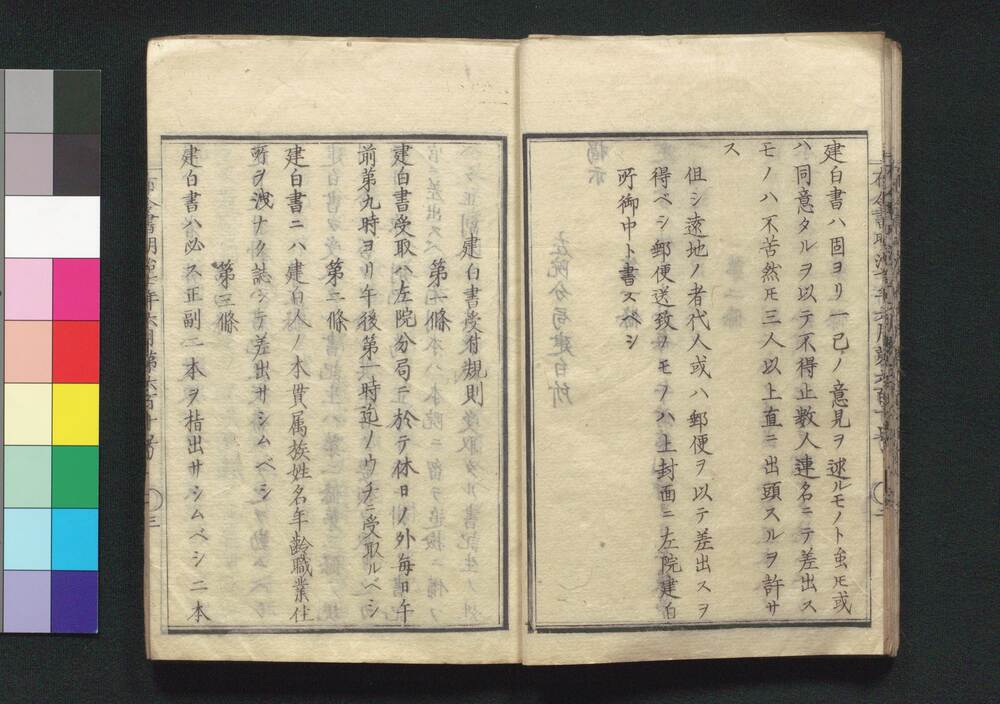 建白書ハ固ヨリ一己ノ意見ヲ述ルモノト虽モ或
ハ同意タルヲ以テ不得止数人連名ニテ差出ス
モノハ不苦然モ三人以上直ニ出頭スルヲ許サ
ス
但シ遠地ノ者代人或ハ郵便ヲ以テ差出スヲ
得ベシ郵便送致ヲモノハ上封面ニ左院建白
所御中ト書スベシ
建白書受付規則
第一條
建白書受取ハ左院分局ニ於テ休日ノ外毎日午
前第九時ヨリ午後第一時迄ノウチニ受取ルベシ
第二條
建白書ニハ建白人ノ本貫属族姓名年齢職業住
所ヲ洩ナク誌シテ差出サシムベシ
第三條
建白書ハ必ス正副二本ヲ指出サシムベシ二本